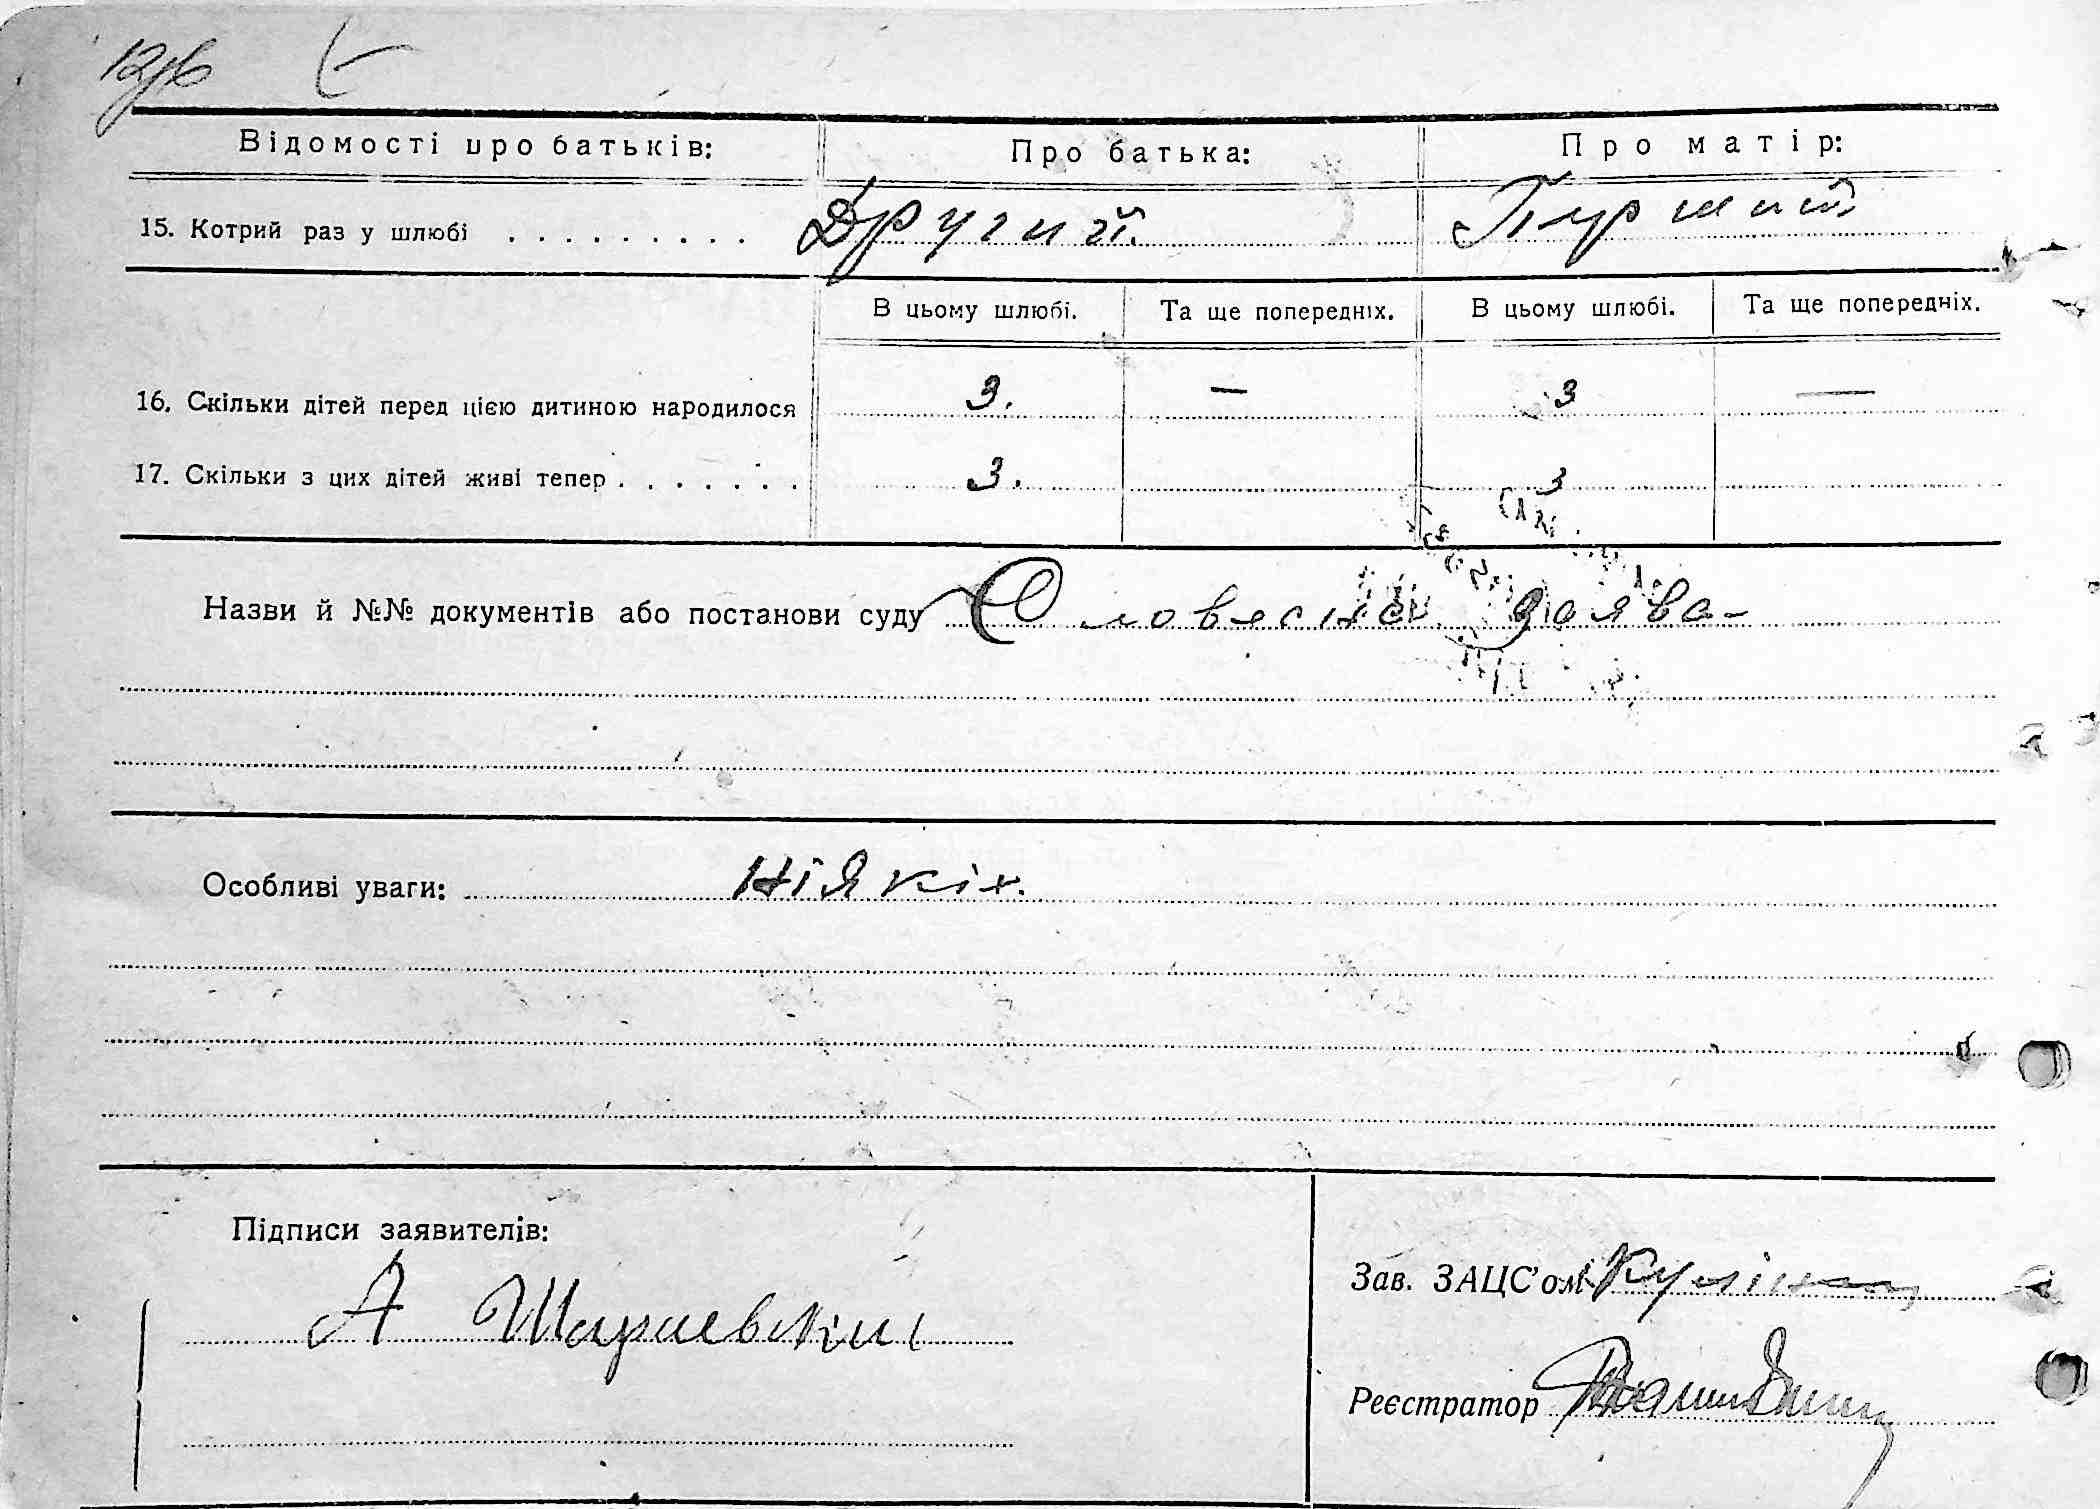 Відомості про батьків: Про батька: Про матір:
15. Котрий раз у шлюбі . . . . . . . . . Другий. Перший
В цьому шлюбі. Та ще попередніх. В цьому шлюбі. Та ще попередніх.
16. Скільки дітей перед цією дитиною народилося 3. — 3 —
17. Скільки з цих дітей живі тепер . . . . . . . 3. 3
Назви й №№ документів або постанови суду Словесна заява
Особливі уваги: ніякіх.
Підписи заявителів:
А
Зав. ЗАЦС'ом
Реєстратор